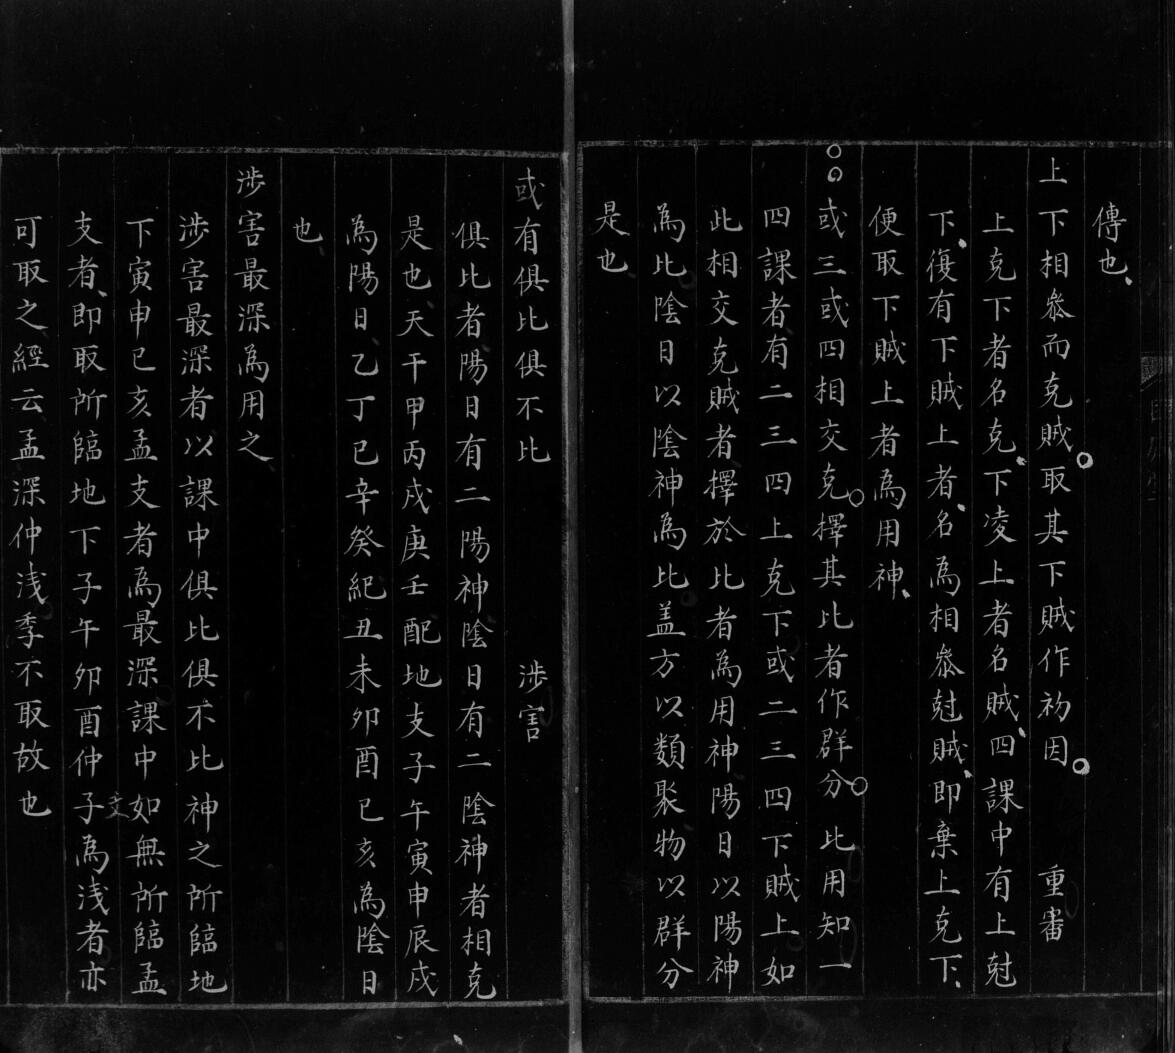 傳也
上下相叅而克賊取其下賊作初因 重審
上克下者名克下凌上者名賊四課中有上尅
下復有下賊上者名為相叅尅賊即棄上克下
便取下賊上者為用神
或三或四相交克擇其比者作群分 比用知一
四課者有二三四上克下或二三四下賊上如
此相交克賊者擇於比者為用神陽日以陽神
為比陰日以陰神為比盖方以類聚物以群分
是也
或有俱比俱不比 涉害
俱比者陽日有二陽神陰日有二陰神者相克
是也天干甲丙戍庚壬配地支子午寅申辰戍
為陽日乙丁巳辛癸紀丑未夘酉巳亥為陰日
也
涉害最深為用之
涉害最深者以課中俱比俱不比神之所臨地
下寅申巳亥孟支者為最深課中如無所臨孟
支者即取所臨地下子午夘酉仲子支為浅者亦
可取之經云孟深仲浅季不取故也